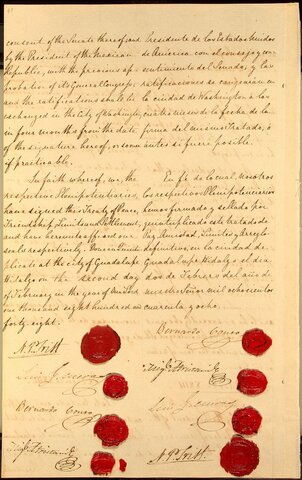 consent of the Senate thereof; and
by the President of the Mexican
Republic, with the previous ap-
probation of its General Congress;
and the ratifications shall be
exchanged in the City of Washington,
in four months from the date
of the signature hereof, or sooner
if practicable.
In faith whereof, we, the
respective Plenipotentiaries,
have signed this Treaty of Peace,
Friendship, Limits and Settlement,
and have hereunto affixed our
seals respectively. Done in Quintu-
plicate at the City of Guadalupe
Hidalgo on the second day
of February in the year of Our Lord
one thousand eight hundred and
forty eight.
N. P. Trist
Luis G. Cuevas
Bernardo Couto
Migl. Atristain
Presidente de los Estados Unidos
de America con el consejo y con-
sentimiento del Senado; y las
ratificaciones se cangearan en
la ciudad de Washington a los
cuatro meses de la fecha de la
firma del mismo tratado, ó
antes si fuere posible.
En fe de lo cual, nosotros
los respectivos Plenipotenciarios
hemos firmado y sellado por
quintuplicado este tratado de
Paz, Amistad, Limites y Arreglo
definitivo, en la ciudad de
Guadalupe Hidalgo el dia
dos de Febrero del año de
nuestro Señor mil ochocientos
cuarenta y ocho.
Bernardo Couto
Migl. Atristain
Luis G. Cuevas
N. P. Trist